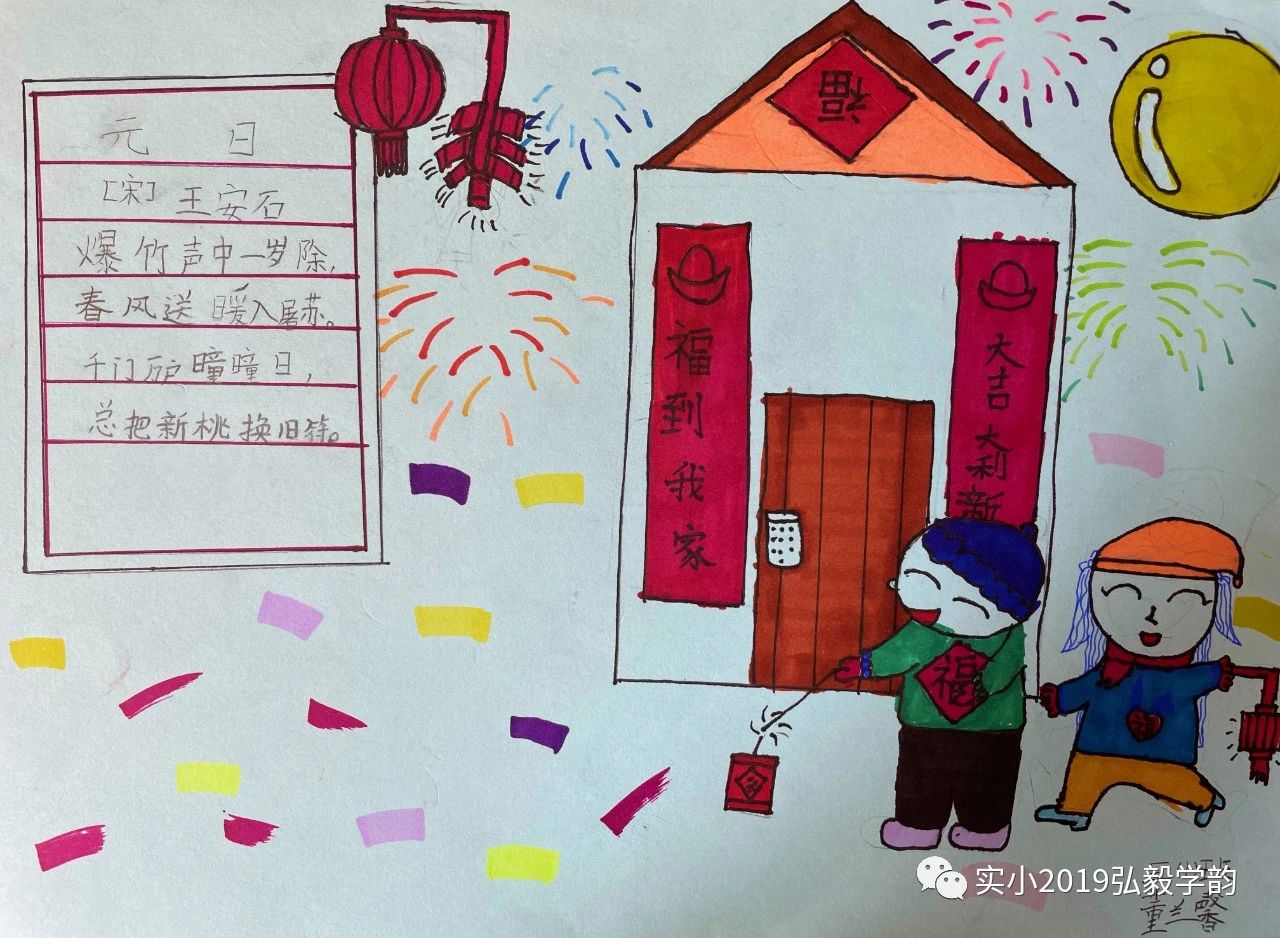 元 日
[宋] 王安石
爆竹声中一岁除,
春风送暖入屠苏。
千门万户曈曈日,
总把新桃换旧符。
福
福到我家
大吉大利新
福
实小2019弘毅学韵
董兰馨